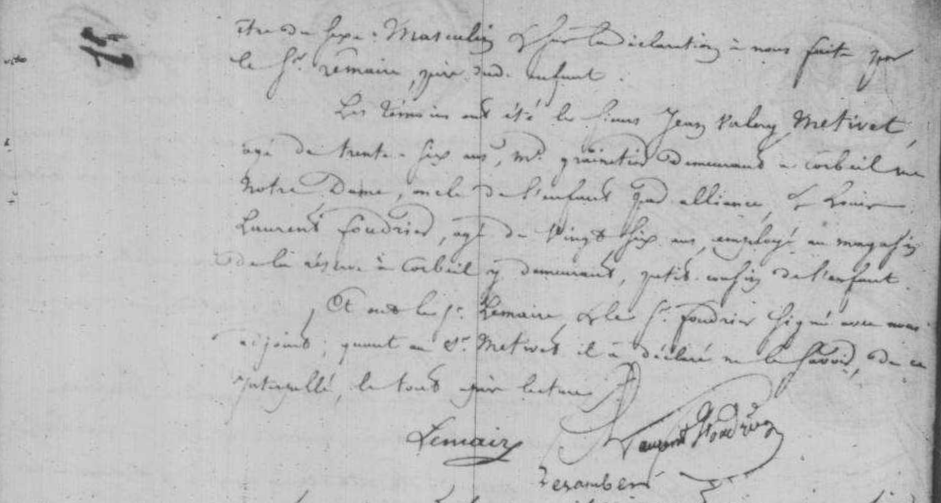 être du sexe Masculin & sur la déclaration à nous faite par
le Sr. Lemaire, père dud. enfant.
Les témoins ont été les sieurs Jean Valery Metivet,
agé de trente-six ans, Md. grainetier demeurant à Corbeil rue
Notre Dame, oncle de l'enfant par alliance, & Louis
Laurent Foudrier, agé de vingt six ans, employé au magasin
de la réserve à Corbeil y demeurant, petit cousin de l'enfant.
Et ont les Sr. Lemaire, & le Sr. Foudrier signé avec nous
adjoint; quant au Sr. Metivet il a déclaré ne le savoir, de ce
interpellé, le tout après lecture
Lemaire Laurent Foudrier